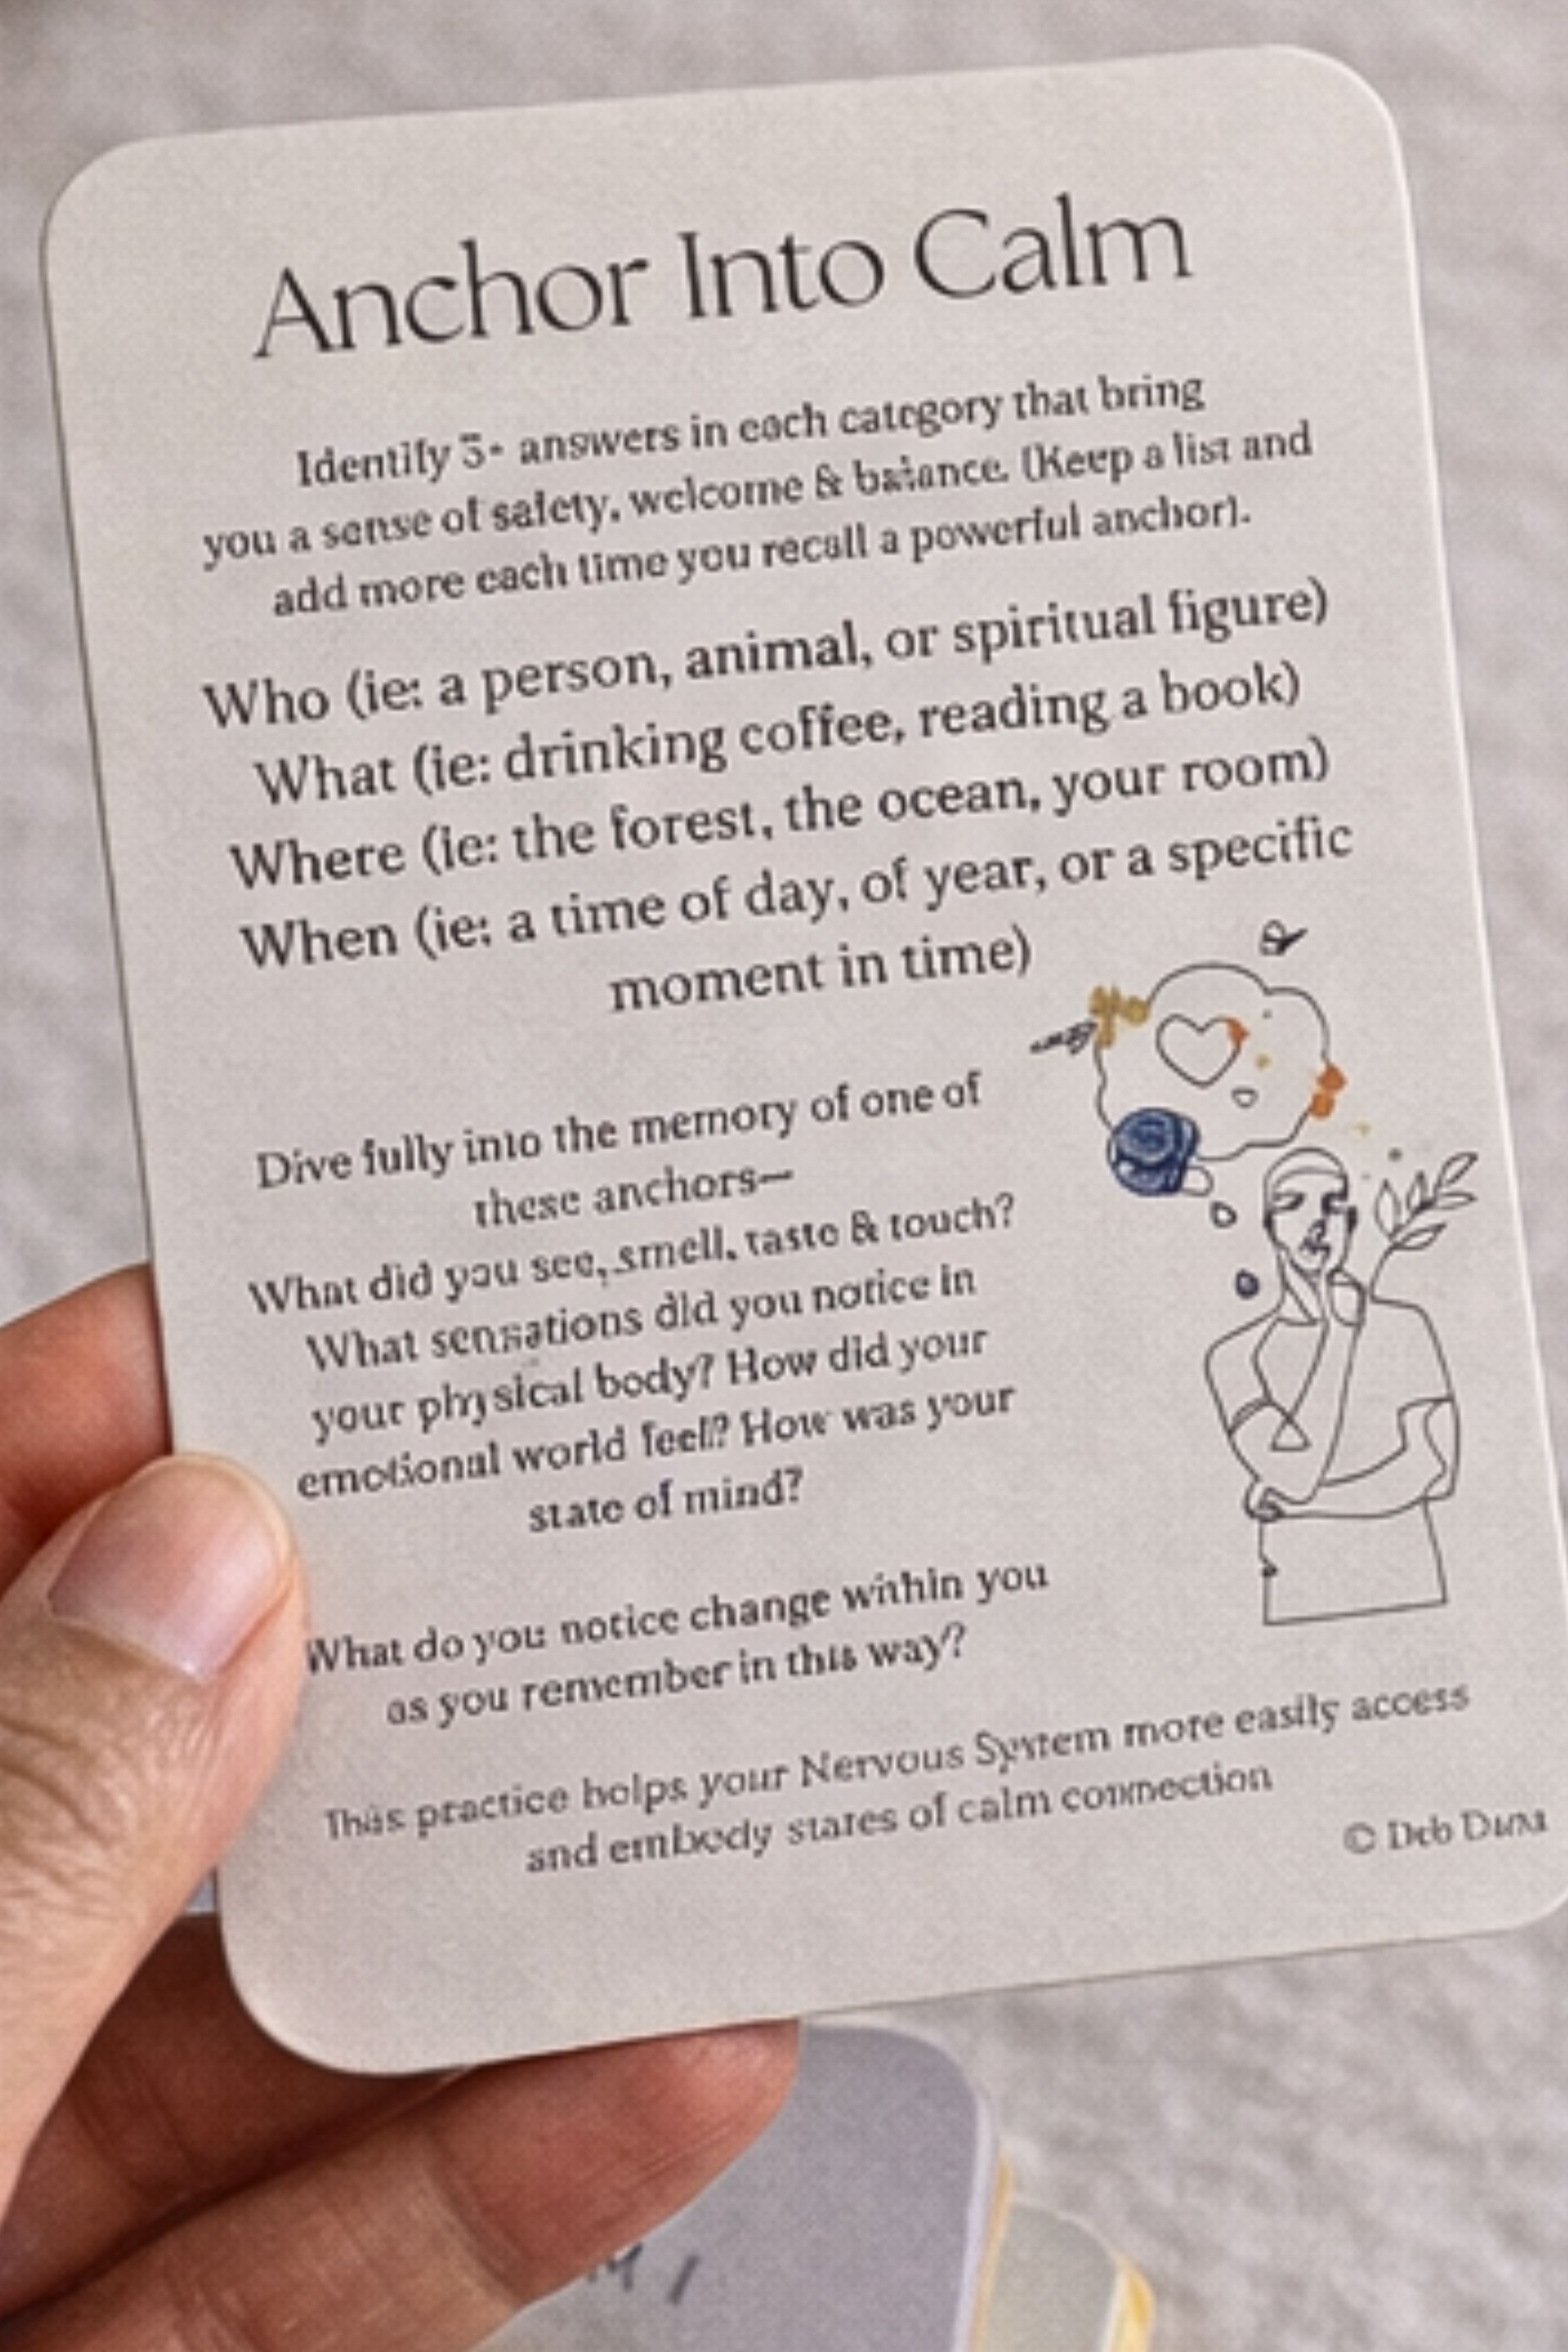 Anchor Into Calm
Identify 3+ answers in each category that bring
you a sense of safety, welcome & balance. (Keep a list and
add more each time you recall a powerful anchor).
Who (ie: a person, animal, or spiritual figure)
What (ie: drinking coffee, reading a book)
Where (ie: the forest, the ocean, your room)
When (ie: a time of day, of year, or a specific
moment in time)
Dive fully into the memory of one of
these anchors—
What did you see, smell, taste & touch?
What sensations did you notice in
your physical body? How did your
emotional world feel? How was your
state of mind?
What do you notice change within you
as you remember in this way?
This practice helps your Nervous System more easily access
and embody states of calm connection
© Deb Dana